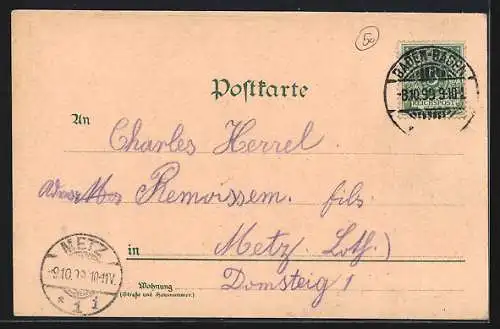 50
Postkarte
BADEN-BADEN
-8.10.99.9-10V.
REICHSPOST
An
Charles Herrel
Remoissem. fils
in Metz (Loth.)
Wohnung Domsteig 1
(Straße und Hausnummer.)
METZ
-9.10.99.10-11V.
* 1 i